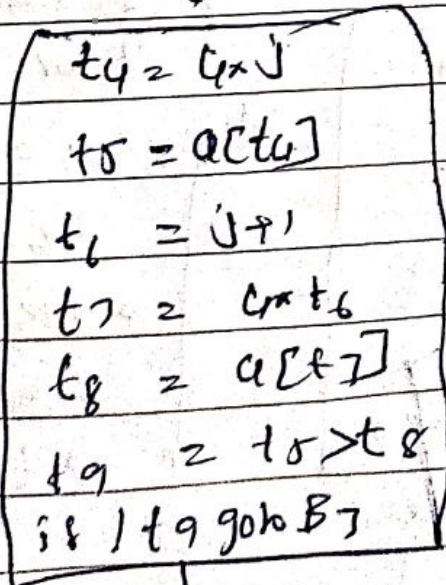 t4 = 4*j
t5 = a[t4]
t6 = j+1
t7 = 4*t6
t8 = a[t7]
t9 = t5>t8
if !t9 goto B7